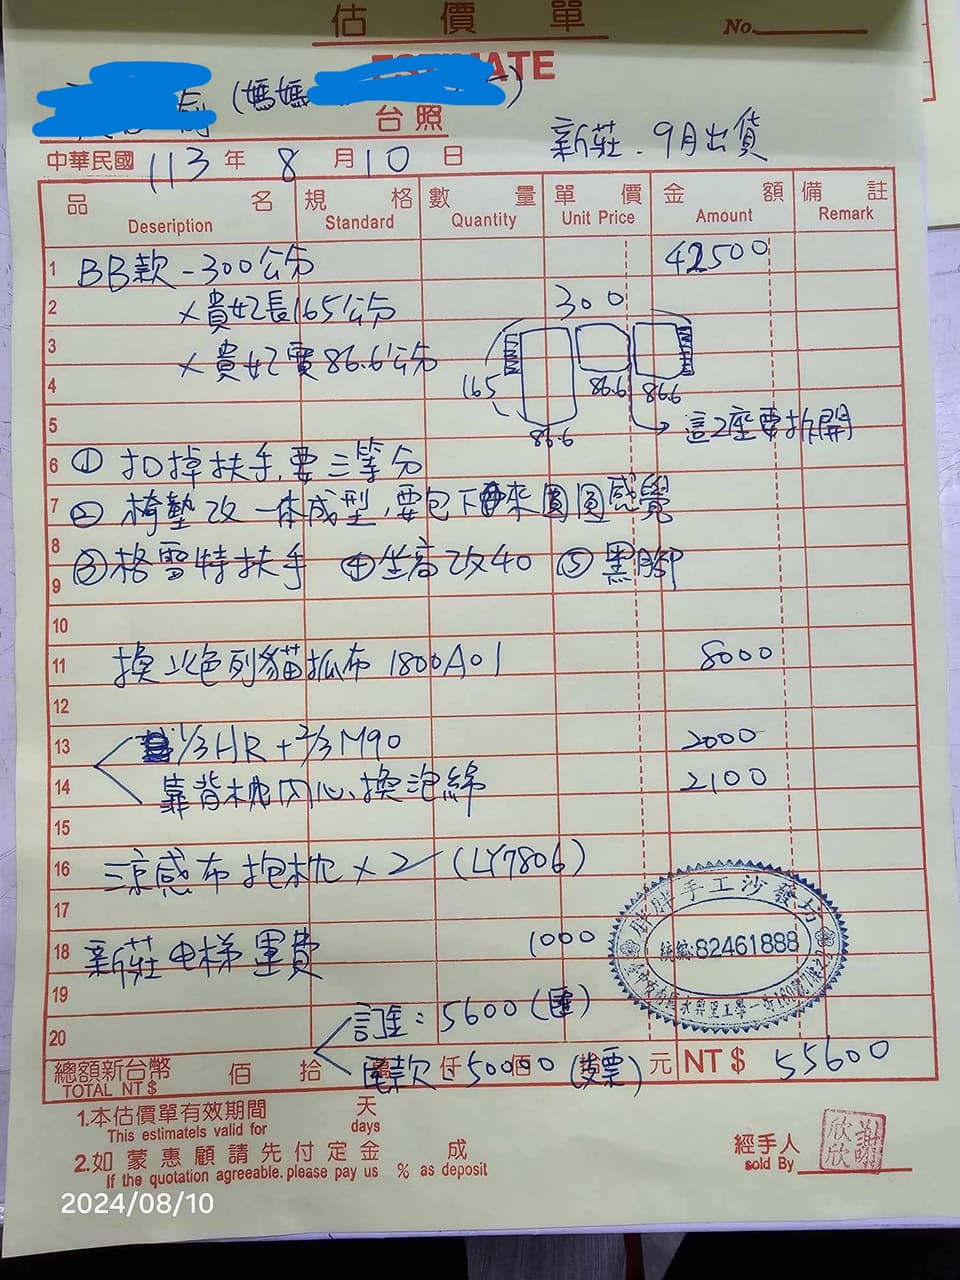 估價單
No.
ESTIMATE
(媽媽
台照
中華民國 113 年 8 月 10 日
新莊. 9月出貨
品名 規格 數量 單價 金額 備註
Deseription Standard Quantity Unit Price Amount Remark
1 BB款-300公分 42500
2 ×貴妃長165公分 300
3 ×貴妃寬86.6公分
4 165 86.6 86.6
5 86.6 這2座要拆開
6 ① 扣掉扶手,要三等分
7 ② 椅墊改一体成型,要包下來圓圓感覺
8 ③格雷特扶手 ④坐高改40 ⑤黑腳
9
10
11 換以色列貓抓布 1800A01 8000
12
13 1/3HR+2/3M90 2000
14 靠背枕內心換泡綿 2100
15
16 涼感布抱枕×2 (LY7806)
17
18 新莊电梯運費 1000
19
20 訂金:5600(匯)
尾款 50000(發票)
胖胖手工沙發坊
統編:82461888
總額新台幣 佰 拾 萬 仟 佰 拾 元 NT$ 55600
TOTAL NT$
1.本估價單有效期間 天
This estimatels valid for days
2.如蒙惠顧請先付定金 成
If the quotation agreeable. please pay us % as deposit
經手人
sold By
謝欣欣
2024/08/10